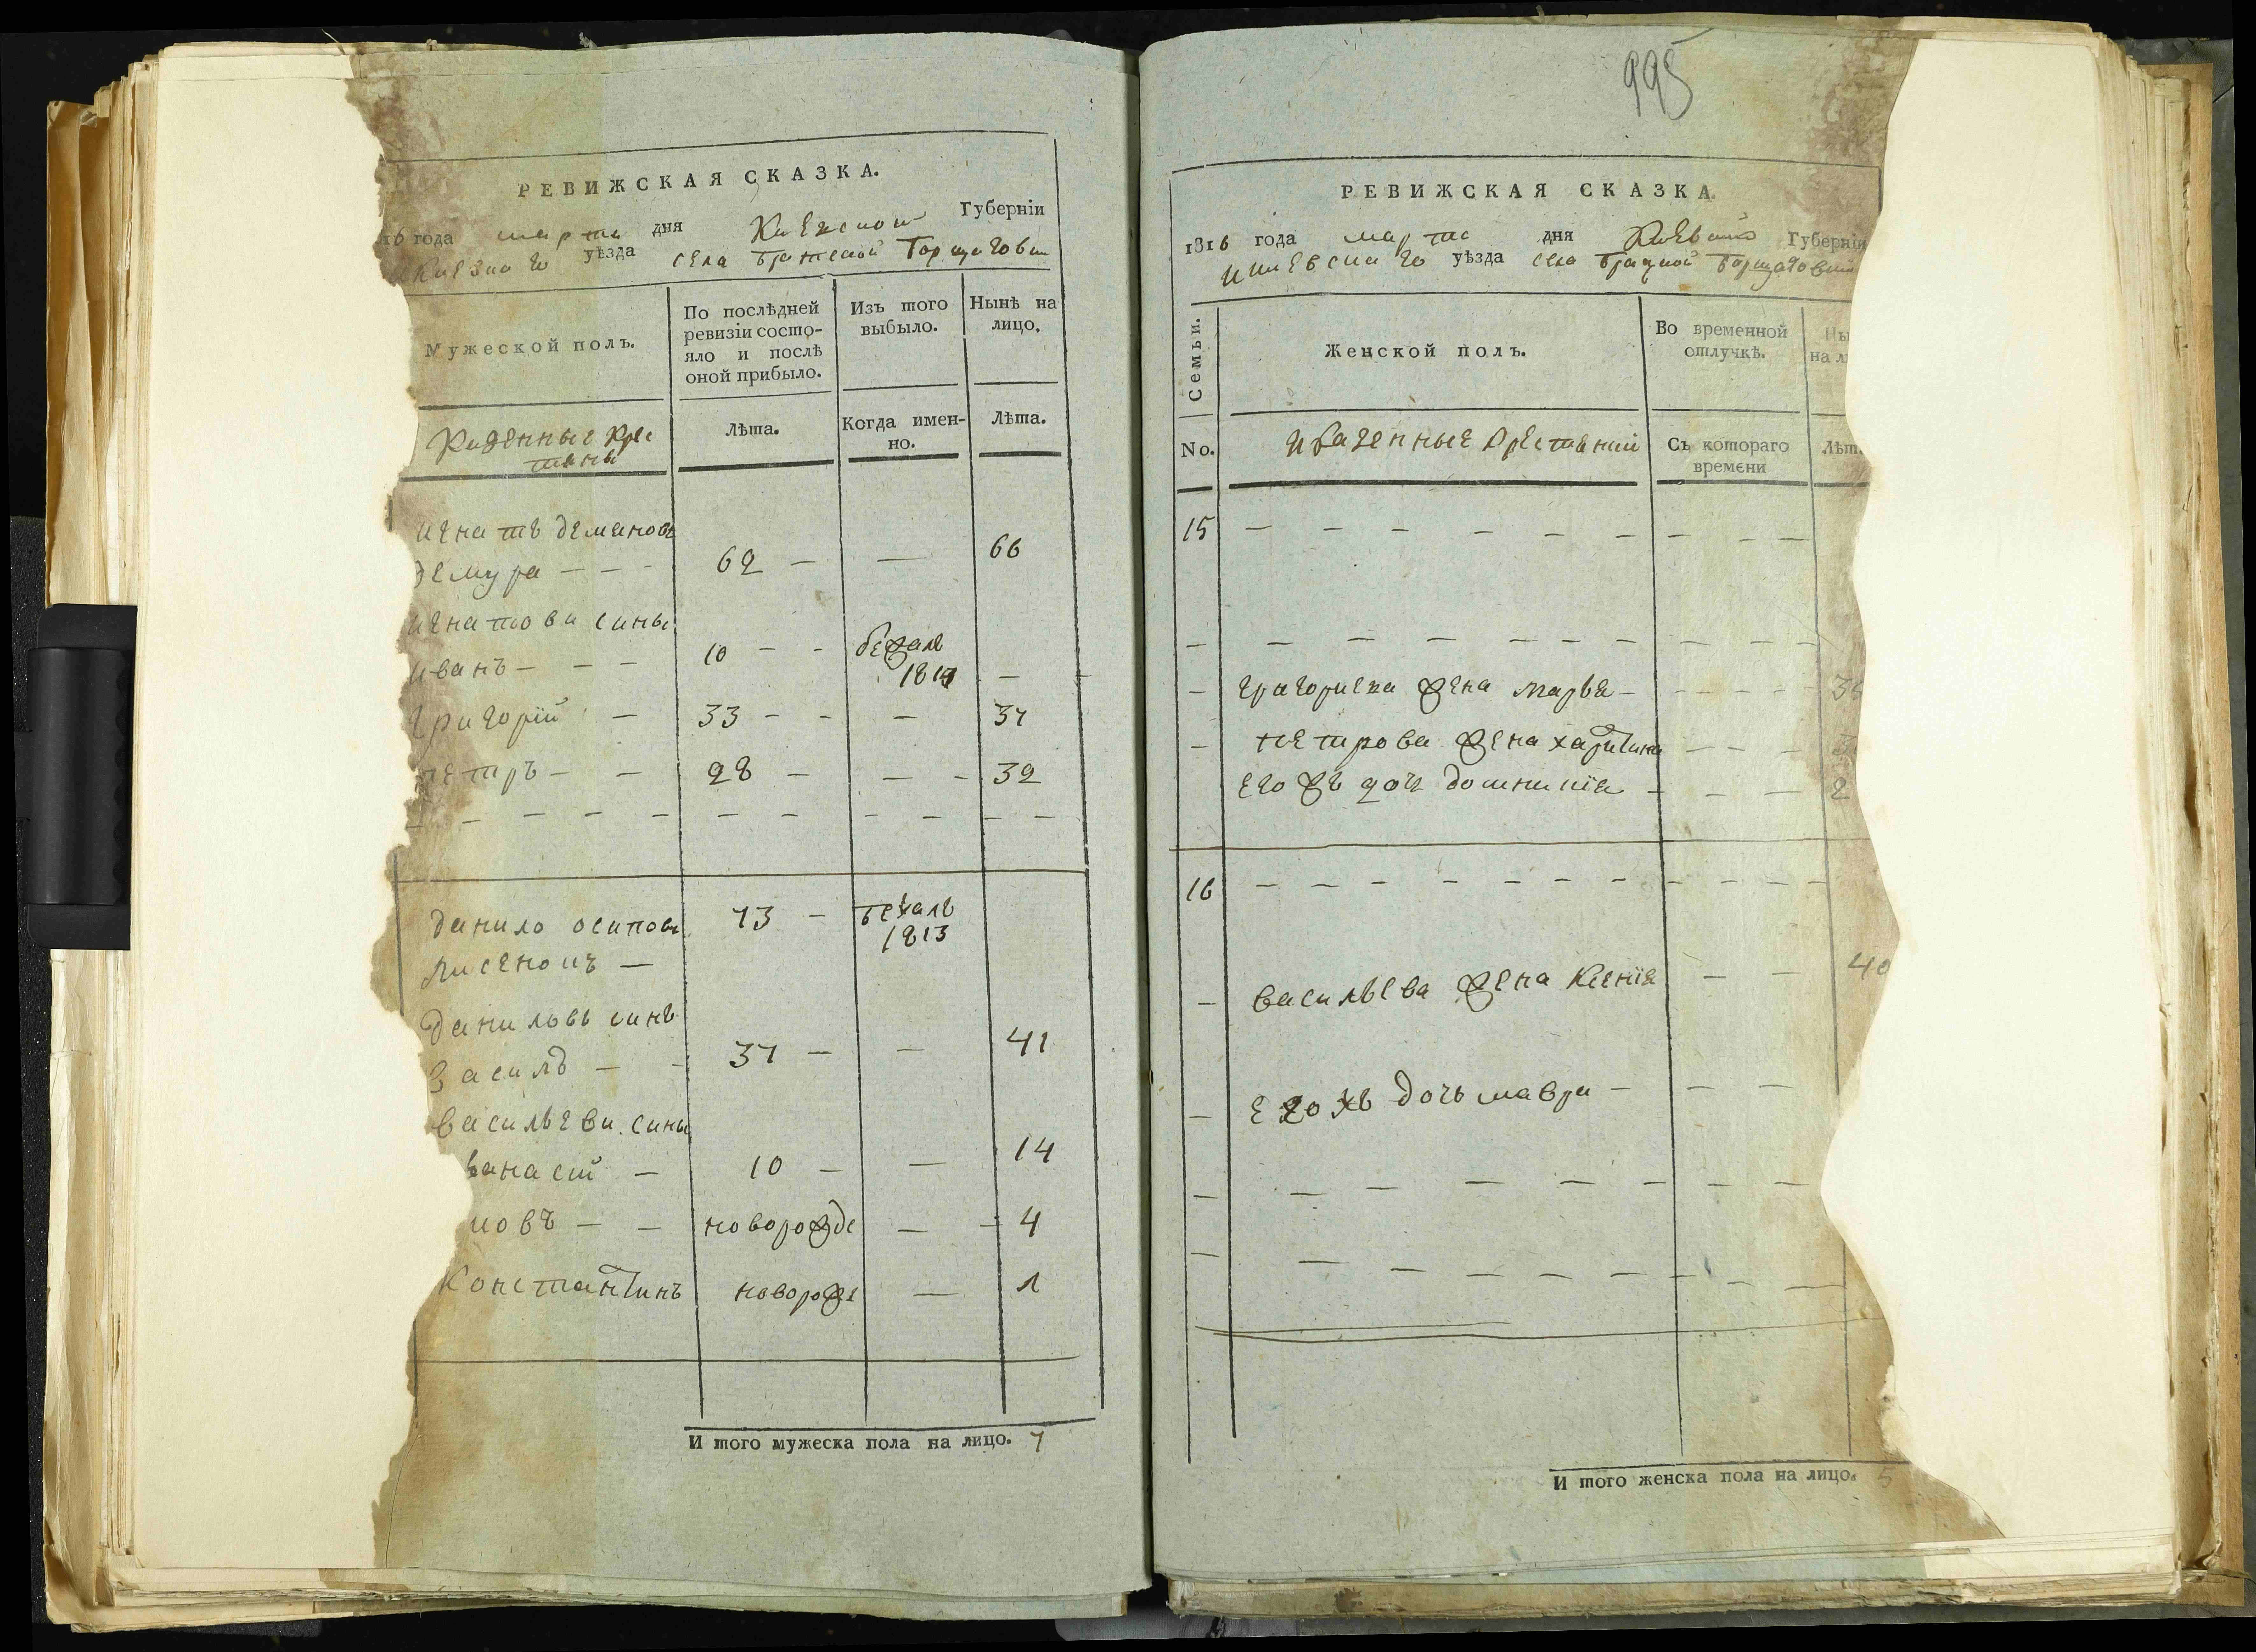 РЕВИЖСКАЯ СКАЗКА.
16 года марта дня Киевской Губернїи
Киевского уѣзда села Братской Борщаговки
Мужеской полъ.
По послѣдней ревизїи состояло и послѣ оной прибыло.
Изъ того выбыло.
Нынѣ на лицо.
Казенные крестяны
Лѣта.
Когда именно.
Лѣта.
игнатъ демяновъ
демура — — — 62 — — 66
игнатови сины
иванъ — — — 10 — — бежалъ 1813 —
григорїй — 33 — — — 37
петръ — — 28 — — — 32
— — — — — — — — — — —
данило осиповъ 73 — бежалъ
лисенокъ — 1813
даниловъ синъ
василъ — — 37 — — 41
васильеви сины
ванасий — 10 — — 14
иовъ — — новорожде — — 4
Константинъ новорожде — 1
И того мужеска пола на лицо. 7
995
РЕВИЖСКАЯ СКАЗКА
1816 года марта дня Киевской Губернїи
Киевского уѣзда села Брацкой Борщаговки
Семьи.
Женской полъ.
Во временной отлучкѣ.
Ны
на л
No.
Казенные крестянки
Съ котораго времени
Лѣт.
15 — — — — — — — — —
— — — — — — — — — —
— григориева жена марья — — — — — 3
— петрова жена харитина — — — 3
его жъ дочь домникїя — — — 2
16 — — — — — — — — — — —
— васильева жена Ксенїя — — 40
— его жъ дочь мавра — — —
— — — — — — — — —
— — — — — — — — —
И того женска пола на лицо. 5